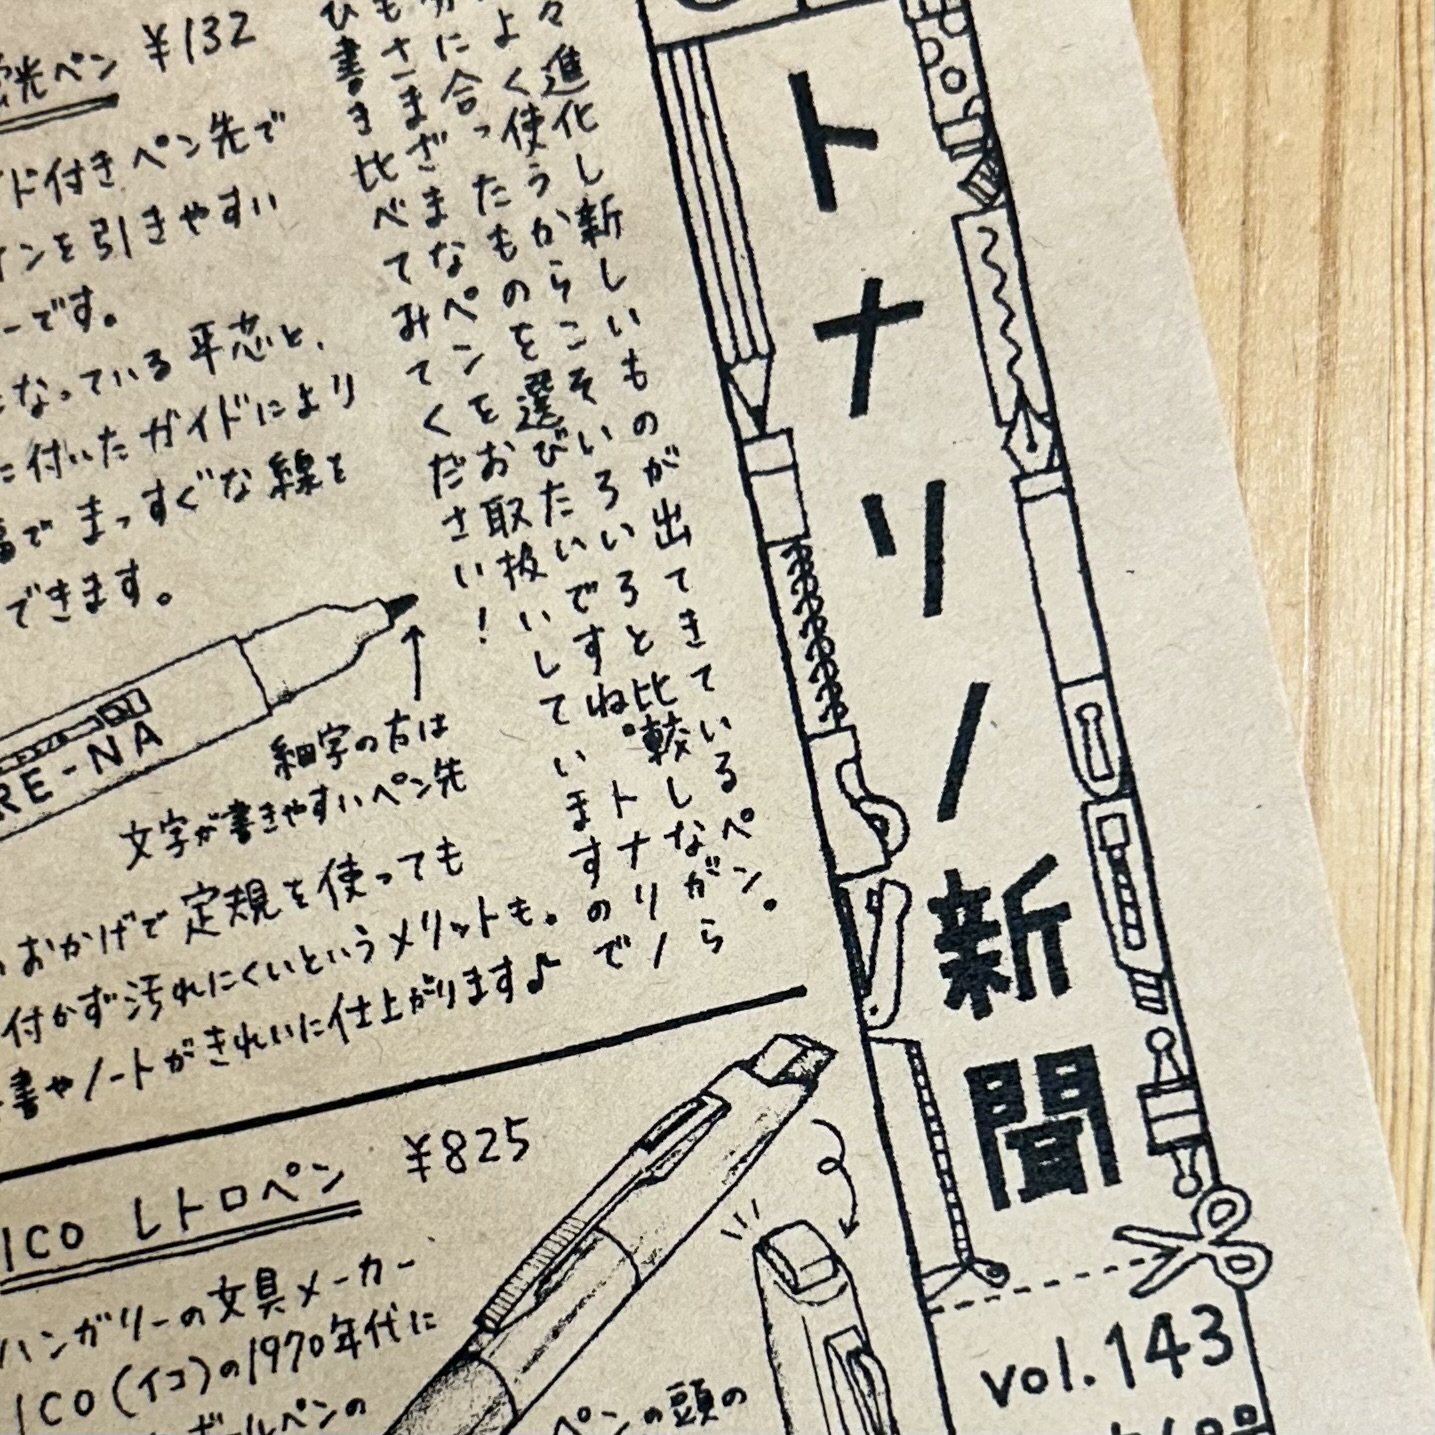 トナリノ新聞
vol.143
々進化し新しいものが出てきているペン。
よく使うからこそいろいろと比較しながら
分に合ったものを選びたいですね。トナリノ
もさまざまなペンをお取扱いしていますので
ひ書き比べてみてください!
蛍光ペン ¥132
ド付きペン先で
インを引きやすい
ーです。
なっている平芯と、
に付いたガイドにより
幅でまっすぐな線を
できます。
RE-NA
細字の方は
文字が書きやすいペン先
おかげで定規を使っても
付かず汚れにくいというメリットも。
書やノートがきれいに仕上がります♪
ICO レトロペン ¥825
ハンガリーの文具メーカー
ICO(イコ)の1970年代に
ボールペンの
ペンの頭の